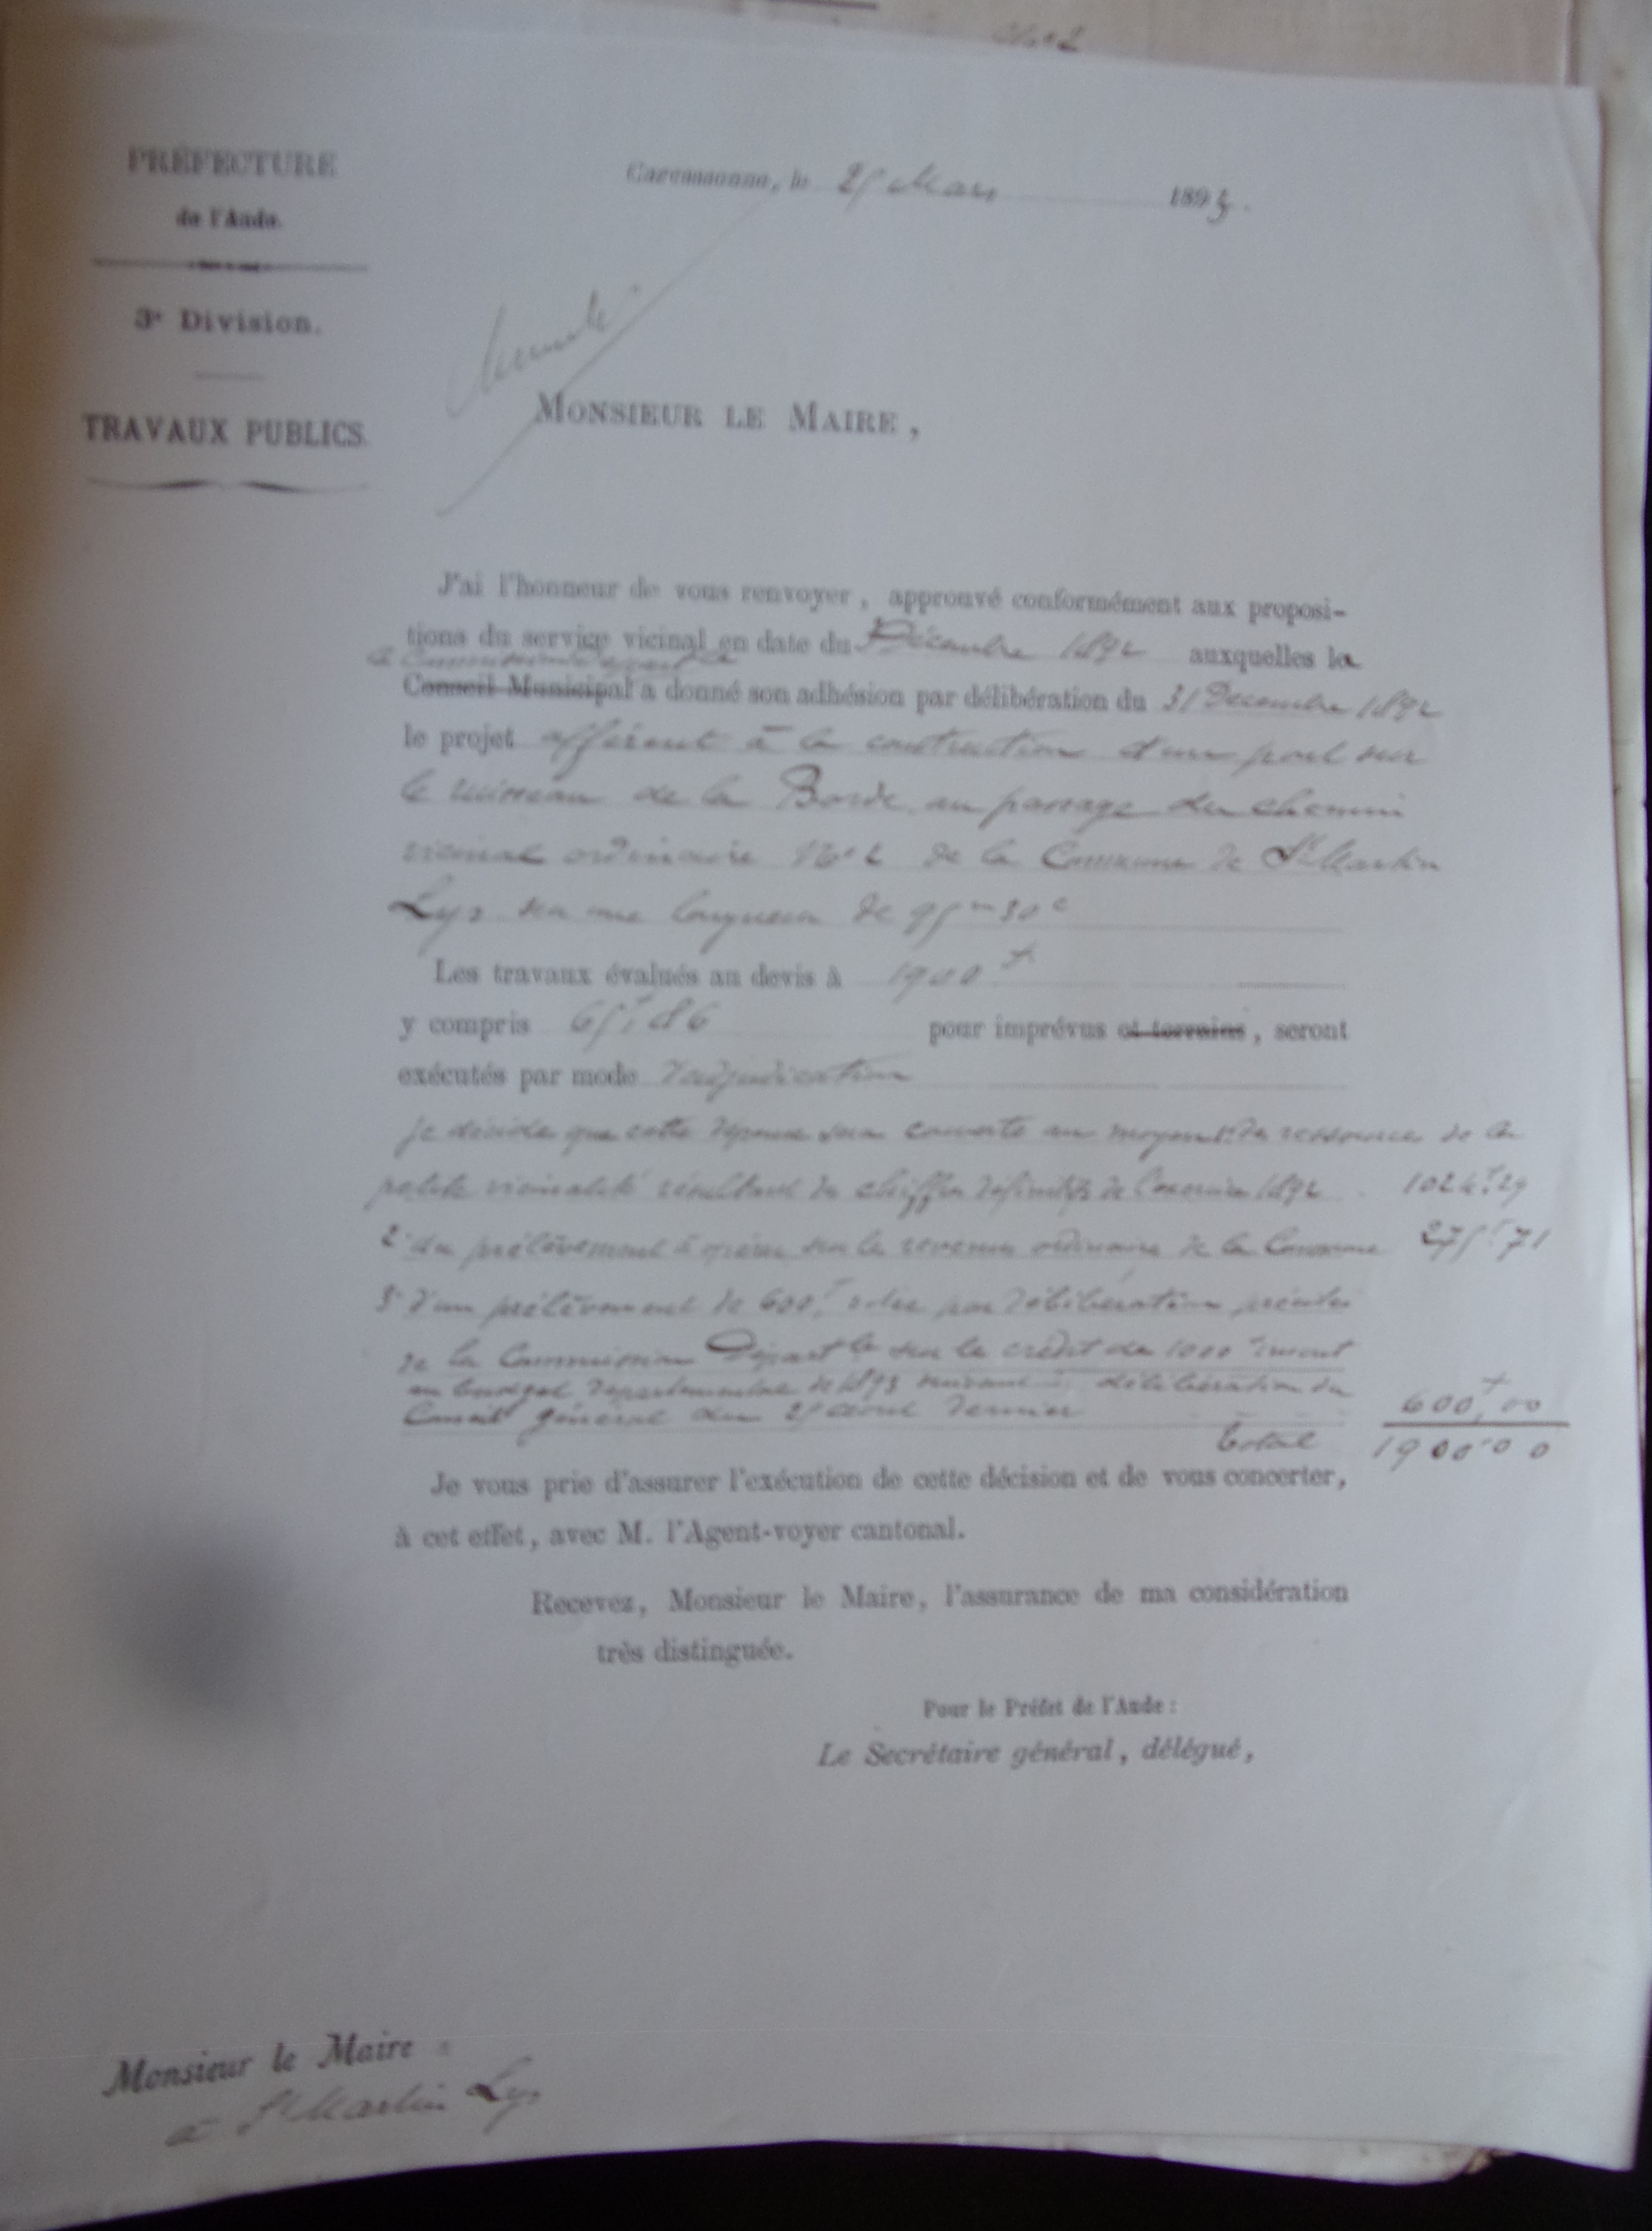 No 2
PRÉFECTURE
de l'Aude.
3e Division.
TRAVAUX PUBLICS.
Carcassonne, le 25 Mars 1893.
Minute
MONSIEUR LE MAIRE,
J'ai l'honneur de vous renvoyer, approuvé conformément aux proposi-
tions du service vicinal en date du Décembre 1892 auxquelles la
Commission
Conseil Municipal a donné son adhésion par délibération du 31 Décembre 1892
le projet afférent à la construction d'un pont sur
le ruisseau de la Borde au passage du chemin
vicinal ordinaire No 2 de la Commune de St Martin
Lys sur une longueur de 95m 30c
Les travaux évalués au devis à 1900 f
y compris 65f,86 pour imprévus et terrains, seront
exécutés par mode d'adjudication
je décide que cette dépense sera couverte au moyen 1° des ressources de la
petite vicinalité résultant du chiffre définitif de l'exercice 1892 . 1024f29
2° du prélèvement à opérer sur les revenus ordinaires de la Commune 275f71
3° d'un prélèvement de 600f voté par délibération
de la Commission Départle sur le crédit de 1000f inscrit
au budget départemental de 1893 suivant délibération du
Conseil général du 25 août dernier 600f,00
Total 1900 00
Je vous prie d'assurer l'exécution de cette décision et de vous concerter,
à cet effet, avec M. l'Agent-voyer cantonal.
Recevez, Monsieur le Maire, l'assurance de ma considération
très distinguée.
Pour le Préfet de l'Aude :
Le Secrétaire général, délégué,
Monsieur le Maire
à St Martin Lys